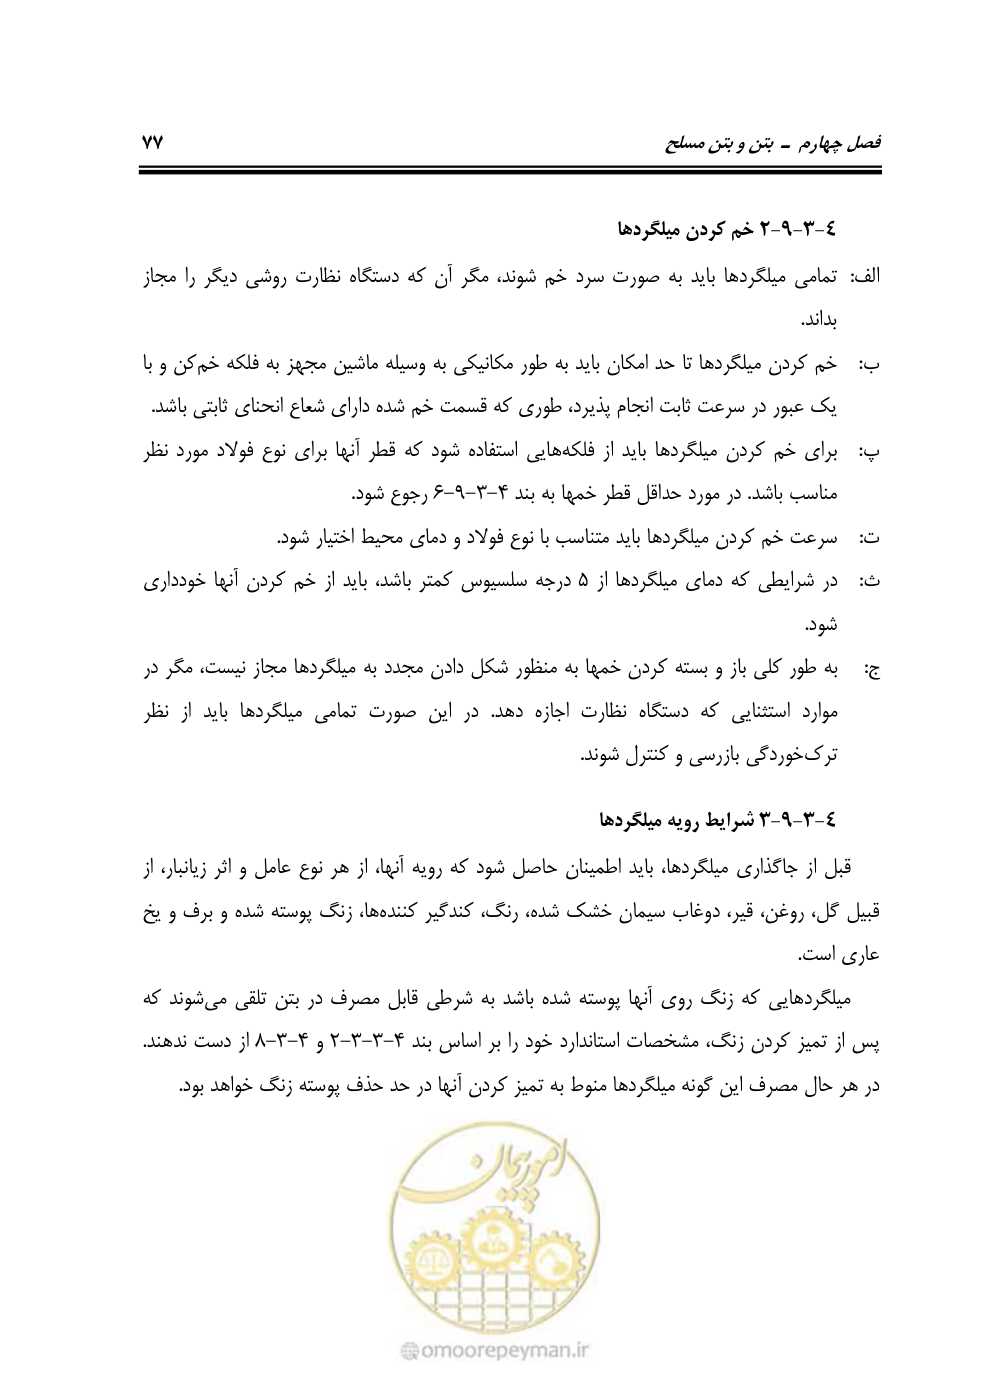 فصل چهارم ـ بتن و بتن مسلح ۷۷
۴-۳-۹-۲ خم کردن میلگردها
الف: تمامی میلگردها باید به صورت سرد خم شوند، مگر آن که دستگاه نظارت روشی دیگر را مجاز
بداند.
ب: خم کردن میلگردها تا حد امکان باید به طور مکانیکی به وسیله ماشین مجهز به فلکه خم‌کن و با
یک عبور در سرعت ثابت انجام پذیرد، طوری که قسمت خم شده دارای شعاع انحنای ثابتی باشد.
پ: برای خم کردن میلگردها باید از فلکه‌هایی استفاده شود که قطر آنها برای نوع فولاد مورد نظر
مناسب باشد. در مورد حداقل قطر خمها به بند ۴-۳-۹-۶ رجوع شود.
ت: سرعت خم کردن میلگردها باید متناسب با نوع فولاد و دمای محیط اختیار شود.
ث: در شرایطی که دمای میلگردها از ۵ درجه سلسیوس کمتر باشد، باید از خم کردن آنها خودداری
شود.
ج: به طور کلی باز و بسته کردن خمها به منظور شکل دادن مجدد به میلگردها مجاز نیست، مگر در
موارد استثنایی که دستگاه نظارت اجازه دهد. در این صورت تمامی میلگردها باید از نظر
ترک‌خوردگی بازرسی و کنترل شوند.
۴-۳-۹-۳ شرایط رویه میلگردها
قبل از جاگذاری میلگردها، باید اطمینان حاصل شود که رویه آنها، از هر نوع عامل و اثر زیانبار، از
قبیل گل، روغن، قیر، دوغاب سیمان خشک شده، رنگ، کندگیر کننده‌ها، زنگ پوسته شده و برف و یخ
عاری است.
میلگردهایی که زنگ روی آنها پوسته شده باشد به شرطی قابل مصرف در بتن تلقی می‌شوند که
پس از تمیز کردن زنگ، مشخصات استاندارد خود را بر اساس بند ۴-۳-۳-۲ و ۴-۳-۸ از دست ندهند.
در هر حال مصرف این گونه میلگردها منوط به تمیز کردن آنها در حد حذف پوسته زنگ خواهد بود.
امور پیمان
@omoorepeyman.ir